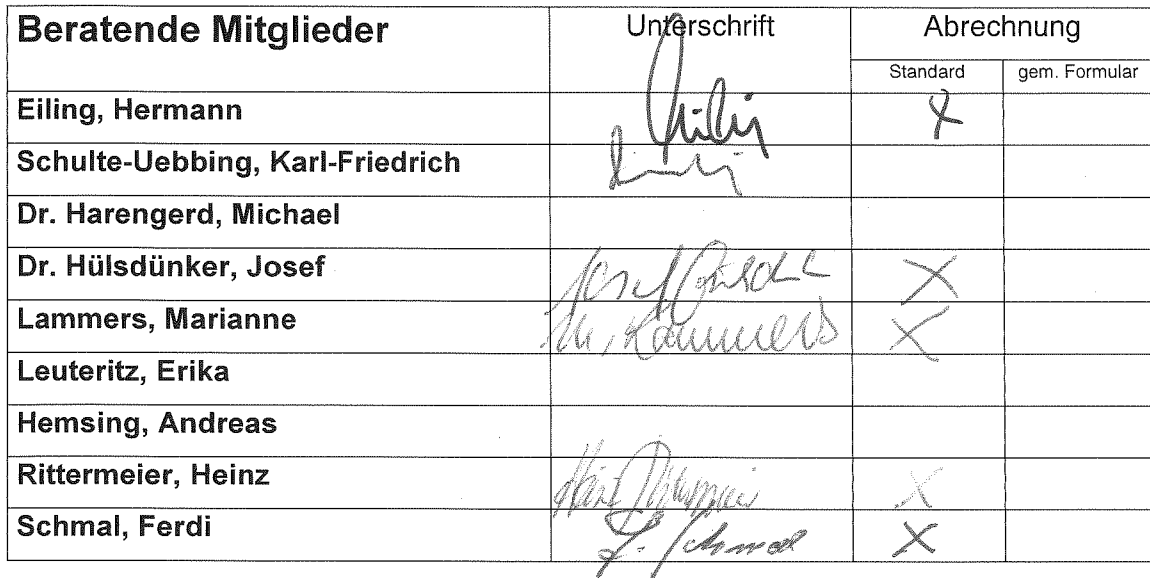 Beratende Mitglieder Unterschrift Abrechnung
Standard gem. Formular
Eiling, Hermann X
Schulte-Uebbing, Karl-Friedrich
Dr. Harengerd, Michael
Dr. Hülsdünker, Josef Josef X
Lammers, Marianne M. Lammers X
Leuteritz, Erika
Hemsing, Andreas
Rittermeier, Heinz X
Schmal, Ferdi F. Schmal X